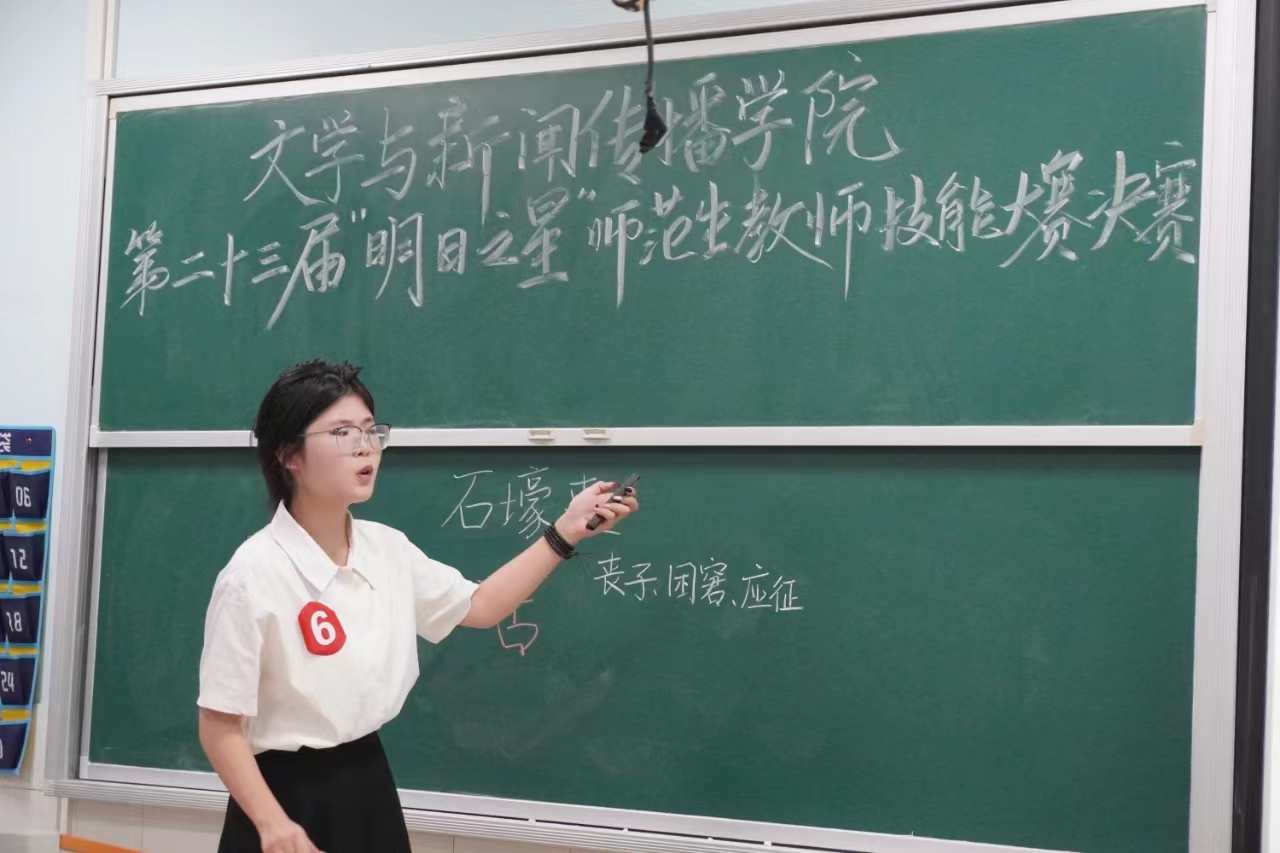 文学与新闻传播学院
第二十三届"明日之星"师范生教师技能大赛决赛
石壕
丧子、困窘、应征
6
06
12
18
24